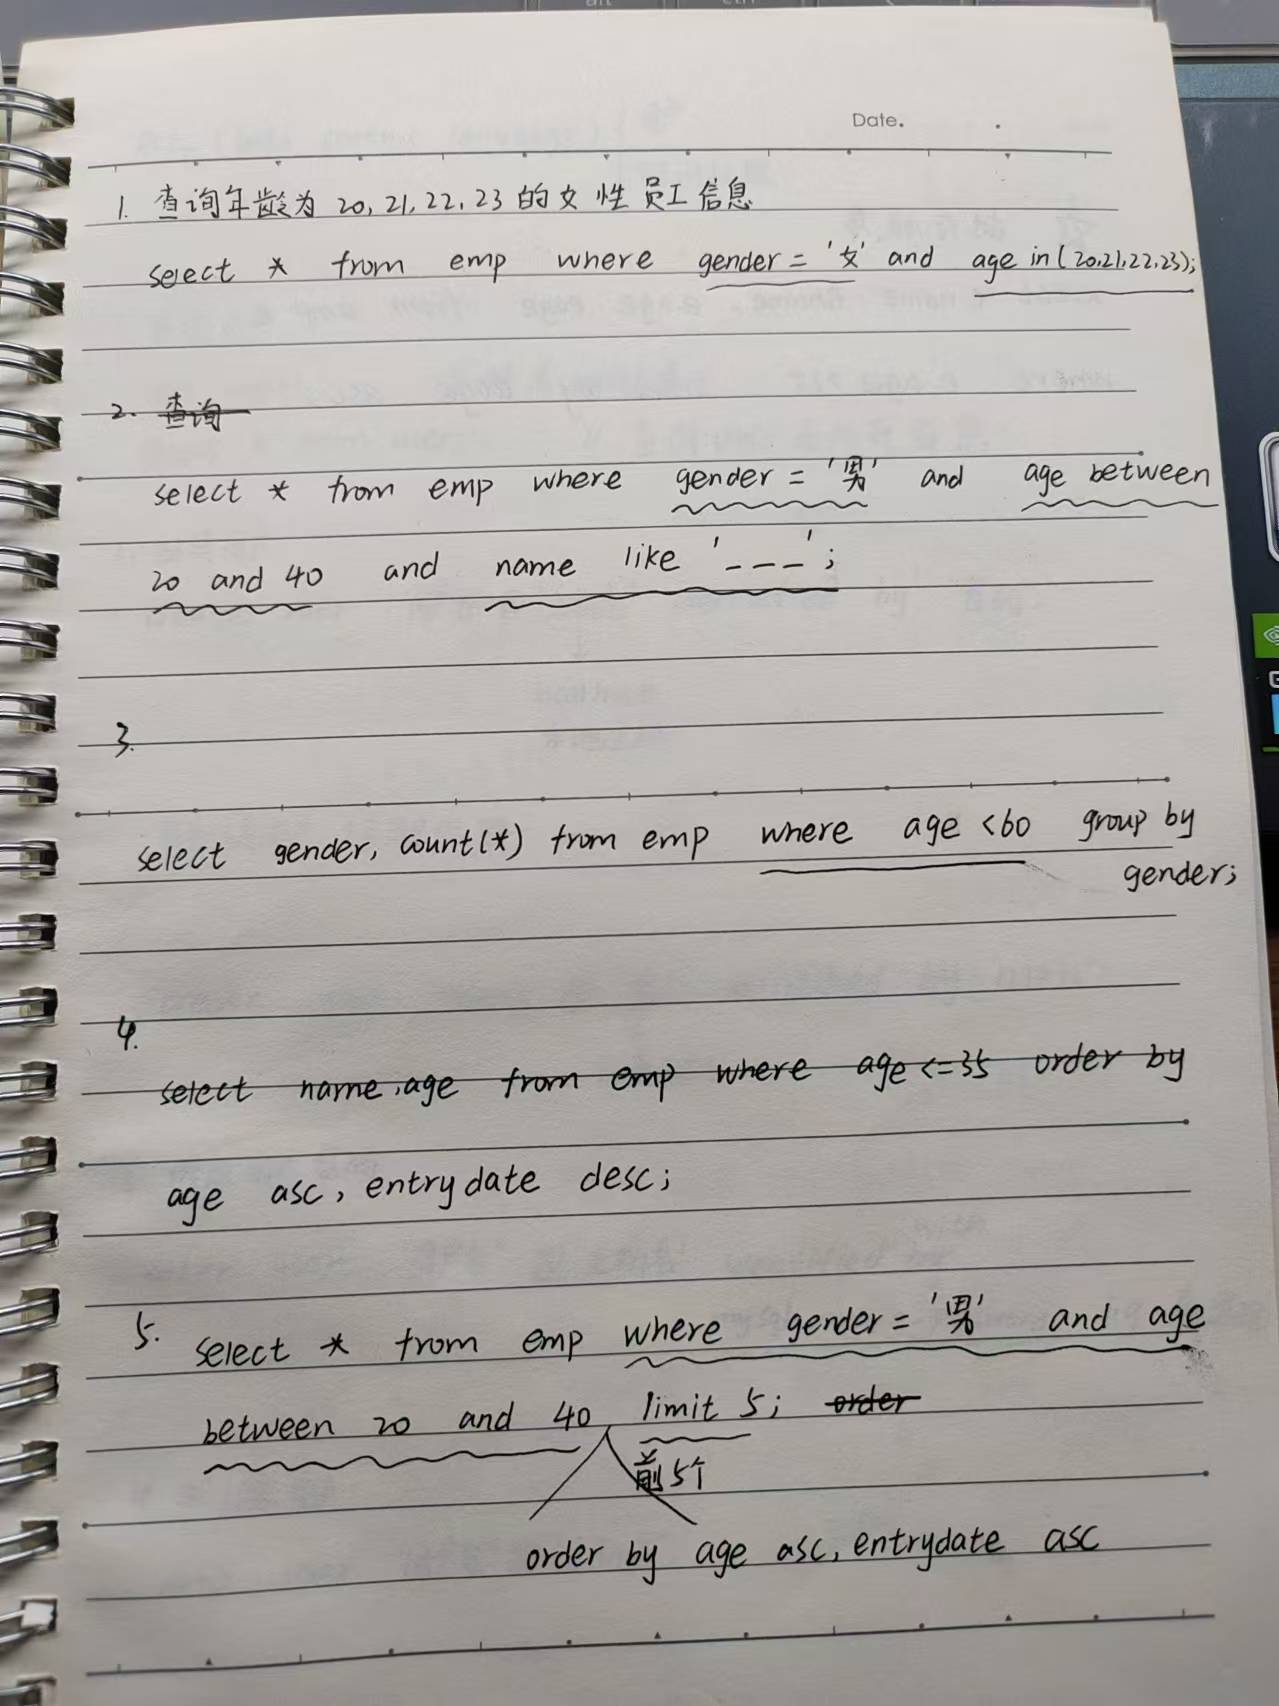 Date.
1. 查询年龄为 20,21,22,23 的女性员工信息
select * from emp where gender = '女' and age in (20,21,22,23);
2. 查询
select * from emp where gender = '男' and age between
20 and 40 and name like '_ _ _';
3.
select gender, count(*) from emp where age <60 group by
gender;
4.
select name,age from emp where age <=35 order by
age asc, entrydate desc;
5. select * from emp where gender = '男' and age
between 20 and 40 limit 5; order
前5个
order by age asc, entrydate asc